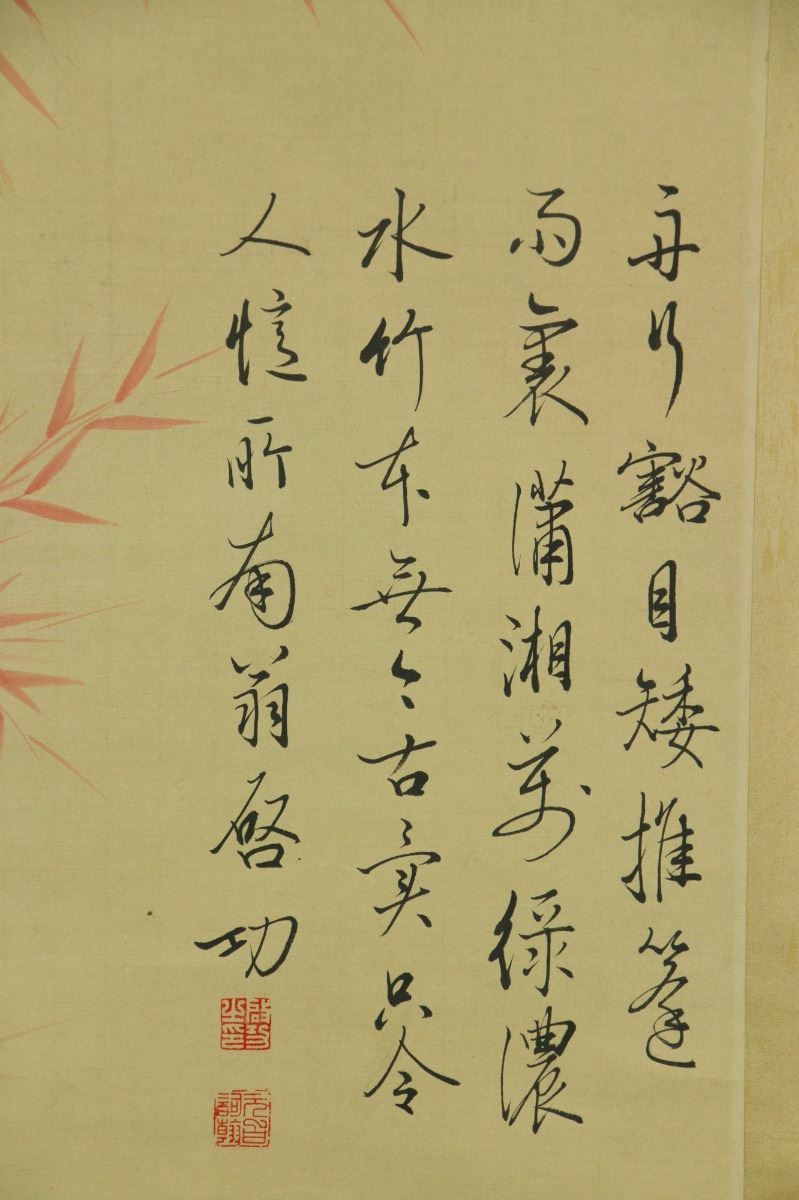 舟行豁目矮推篷
雨裏瀟湘萬綠濃
水竹本無今古異只令
人憶所南翁啓功